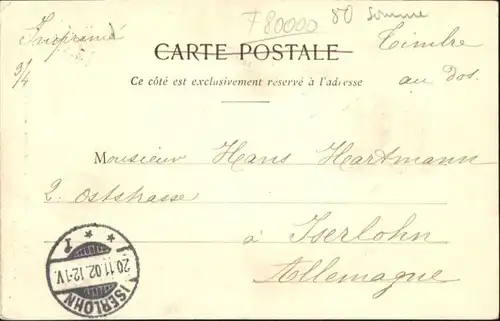 F80000 80 Somme
Imprimé
CARTE POSTALE
Timbre
3/4
Ce côté est exclusivement réservé à l'adresse
au dos.
Monsieur Hans Hartmann
2. Oststrasse
à Iserlohn
Allemagne
ISERLOHN
20.11.02.12-1V.
* * 1